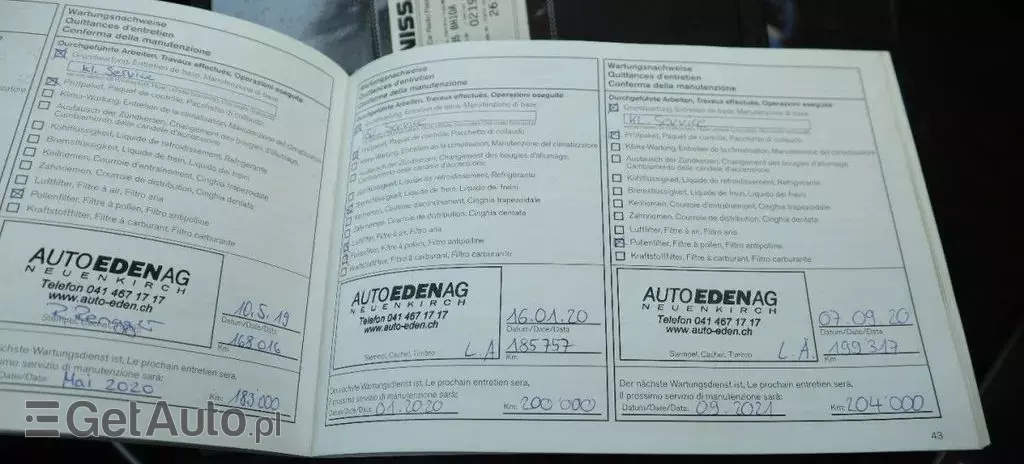 Wartungsnachweise
Quittances d'entretien
Conferma della manutenzione
Durchgeführte Arbeiten, Travaux effectués, Operazioni eseguite
Grundwartung, Entretien de base, Manutenzione di base
kl. Service
Prüfpaket, Paquet de contrôle, Pacchetto di collaudo
Klima-Wartung, Entretien de la climatisation, Manutenzione del climatizzatore
Austausch der Zündkerzen, Changement des bougies d'allumage,
Cambiamento delle candele d'accensione
Kühlflüssigkeit, Liquide de refroidissement, Refrigerante
Bremsflüssigkeit, Liquide de frein, Liquido de freni
Keilriemen, Courroie d'entraînement, Cinghia trapezoidale
Zahnriemen, Courroie de distribution, Cinghia dentata
Luftfilter, Filtre à air, Filtro aria
Pollenfilter, Filtre à pollen, Filtro antipolline
Kraftstofffilter, Filtre à carburant, Filtro carburante
AUTO EDEN AG
NEUENKIRCH
Telefon 041 467 17 17
www.auto-eden.ch
10.5.19
Datum/Date/Data
168016
Km
Nächste Wartungsdienst ist, Le prochain entretien sera,
prossimo servizio di manutenzione sarà:
Date/Data: Mai 2020
Km: 183'000
NISS
Wartungsnachweise
Quittances d'entretien
Conferma della manutenzione
Durchgeführte Arbeiten, Travaux effectués, Operazioni eseguite
Grundwartung, Entretien de base, Manutenzione di base
kl. Service
Prüfpaket, Paquet de contrôle, Pacchetto di collaudo
Klima-Wartung, Entretien de la climatisation, Manutenzione del climatizzatore
Austausch der Zündkerzen, Changement des bougies d'allumage,
Cambiamento delle candele d'accensione
Kühlflüssigkeit, Liquide de refroidissement, Refrigerante
Bremsflüssigkeit, Liquide de frein, Liquido de freni
Keilriemen, Courroie d'entraînement, Cinghia trapezoidale
Zahnriemen, Courroie de distribution, Cinghia dentata
Luftfilter, Filtre à air, Filtro aria
Pollenfilter, Filtre à pollen, Filtro antipolline
Kraftstofffilter, Filtre à carburant, Filtro carburante
AUTO EDEN AG
NEUENKIRCH
Telefon 041 467 17 17
www.auto-eden.ch
Stempel, Cachet, Timbro
L.A
16.01.20
Datum/Date/Data
185757
Km
Der nächste Wartungsdienst ist, Le prochain entretien sera,
Il prossimo servizio di manutenzione sarà:
Datum/Date/Data: 01.2020
Km: 200'000
Wartungsnachweise
Quittances d'entretien
Conferma della manutenzione
Durchgeführte Arbeiten, Travaux effectués, Operazioni eseguite
Grundwartung, Entretien de base, Manutenzione di base
kl. Service
Prüfpaket, Paquet de contrôle, Pacchetto di collaudo
Klima-Wartung, Entretien de la climatisation, Manutenzione del climatizzatore
Austausch der Zündkerzen, Changement des bougies d'allumage,
Cambiamento delle candele d'accensione
Kühlflüssigkeit, Liquide de refroidissement, Refrigerante
Bremsflüssigkeit, Liquide de frein, Liquido de freni
Keilriemen, Courroie d'entraînement, Cinghia trapezoidale
Zahnriemen, Courroie de distribution, Cinghia dentata
Luftfilter, Filtre à air, Filtro aria
Pollenfilter, Filtre à pollen, Filtro antipolline
Kraftstofffilter, Filtre à carburant, Filtro carburante
AUTO EDEN AG
NEUENKIRCH
Telefon 041 467 17 17
www.auto-eden.ch
Stempel, Cachet, Timbro
L.A.
07.09.20
Datum/Date/Data
199317
Km
Der nächste Wartungsdienst ist, Le prochain entretien sera,
Il prossimo servizio di manutenzione sarà:
Datum/Date/Data: 09.2021
Km: 204'000
43
GetAuto.pl